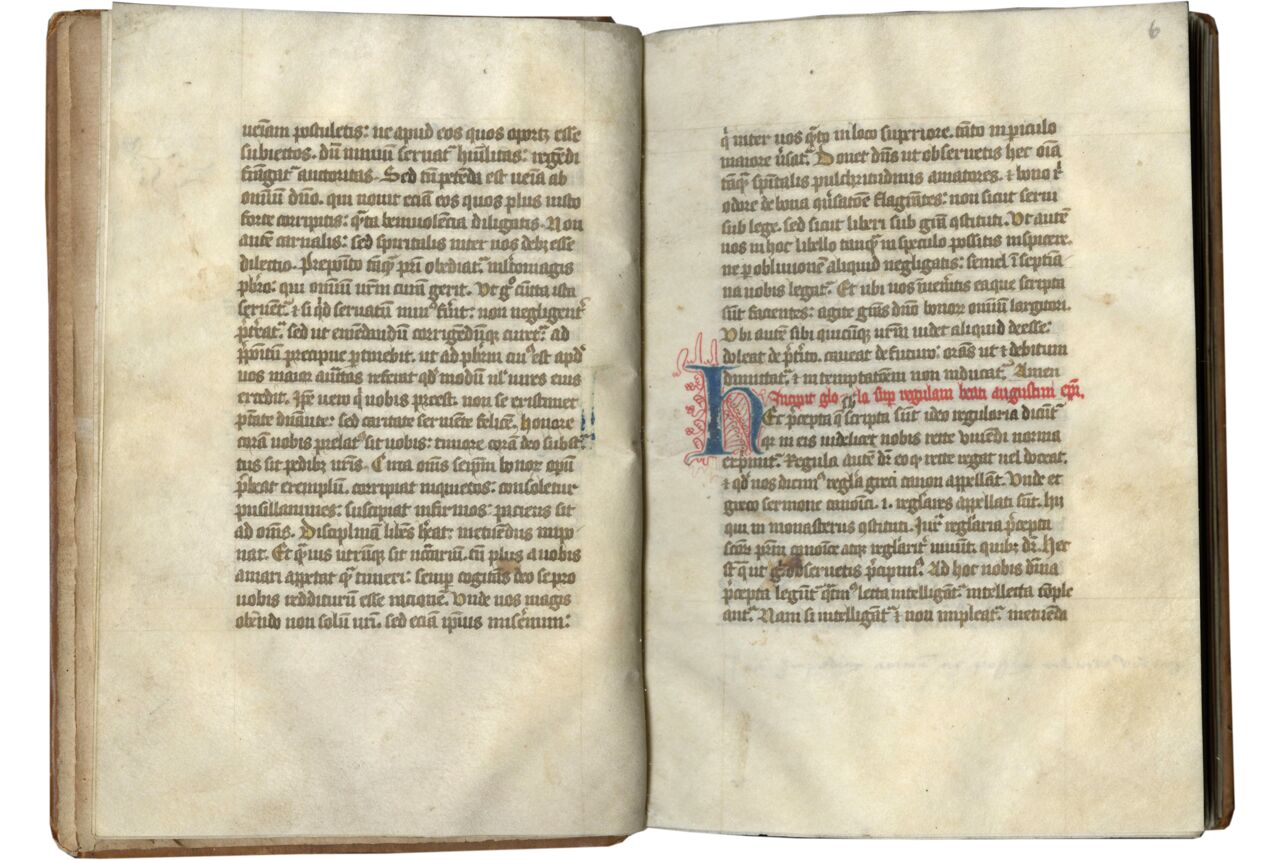 ueīam postuletis: ne apud eos quos oportꝫ esse
subiectos. dū nimiū seruat᷑ hūilitas: regēdi
frāgat᷑ auctoritas. Sed tn̄ petēda est uēia ab
omniū dn̄o. qui nouit eciā eos quos plus iusto
forte corripitis: q̄ta beniuolēcia diligatis. Non
autē carnalis: sed spiritalis inter nos debꝫ esse
dilectio. Preposito tāqꝫ pr̄i obediat᷑. m̄lto magis
pb̄ro: qui omniū ur̄m curā gerit. Vt gͦ cūcta ista
seruent᷑. ⁊ si qͥd seruatum minꝰ fūit: non negligent᷑
p̄tereat᷑. sed ut emēdandū corrigēdūqꝫ curet᷑: ad
p̄positū precipue pertinebit. ut ad pb̄rm cuiꝰ est apd̓
uos maior auc̄tas referat qd̓ modū ul̓ uires eius
excedit. Ip̄e uero q̓ uobis preest. non se existimet
ptāte dn̄ante: sed caritate seruiente felicē. honore
corā uobis prelatꝰ sit uobis: timore corā deo substͣ
tus sit pedibꝫ ur̄is. Circa om̄s seip̄m bonoꝝ opū
p̄beat exemplū. corripiat inquietos: consoletur
pusillanimes: suscipiat infirmos: paciens sit
ad om̄s. Disciplinā libēs h̄eat: metuēdus impo
nat. Et q̄uis utrūqꝫ sit nc̄cariū. tn̄ plus a uobis
amari appetat q̄ timeri: semꝑ cogitās deo se pro
uobis redditurū esse racionē. Vnde uos magis
obēndo non solū ur̄i. sed eciā ipsius miserimini:
6
q̓ inter uos q̄to in loco superiore. tāto in ꝑiculo
maiore ūsat᷑. Donet dn̄s ut obseruetis hec oīa
tāqꝫ spūitalis pulchritudinis amatores. ⁊ bono
odore de bona ꝯūsatōne flagrātes: non sicut serui
sub lege. sed sicut liberi sub gr̄a ꝯstituti. Vt autē
uos in hoc libello tanqꝫ in speculo possitis inspicere.
ne ꝑ obliuionē aliquid negligatis: semel ī septīa
na uobis legat᷑. Et ubi uos īuēitis eaque scripta
sūt facientes: agite gr̄as dn̄o bonoꝝ omniū largitori.
Vbi autē sibi quicūqꝫ ur̄m uidet aliquid deesse:
doleat de p̄t̓ito. caueat de futuro: orās ut ⁊ debitum
dimittat᷑. ⁊ in temptatōem non inducat᷑. Amen
Incipit glosula sup regulam beati augustini ep̄i.
hEc p̄cepta q̄ scripta sūt ideo regularia dicūt᷑
qꝛ in eis uidelicet nobis recte viuēdi norma
exp̄mit᷑. Regula autē dr̄ eo qꝫ recte regat uel doceat.
⁊ qd̓ nos dicimꝰ reglā greci canon appellāt. Vnde et
greco sermone canōici. i. reglares appellati sūt. hii
qui in monasteriis ꝯstituti. Iux̄ reglaria p̄cepta
scōꝝ pr̄m canōice atqꝫ reglarit̓ uiuūt. quibꝫ dr̄. Hec
st̄ que ut obseruetis p̄cipimꝰ. Ad hoc nobis diuīa
p̄cepta legūt᷑ q̄tinꝰ lecta intelligāt᷑. intellecta cōple
ant᷑. Nam si intelligāt᷑ ⁊ non impleāt᷑. metuenda